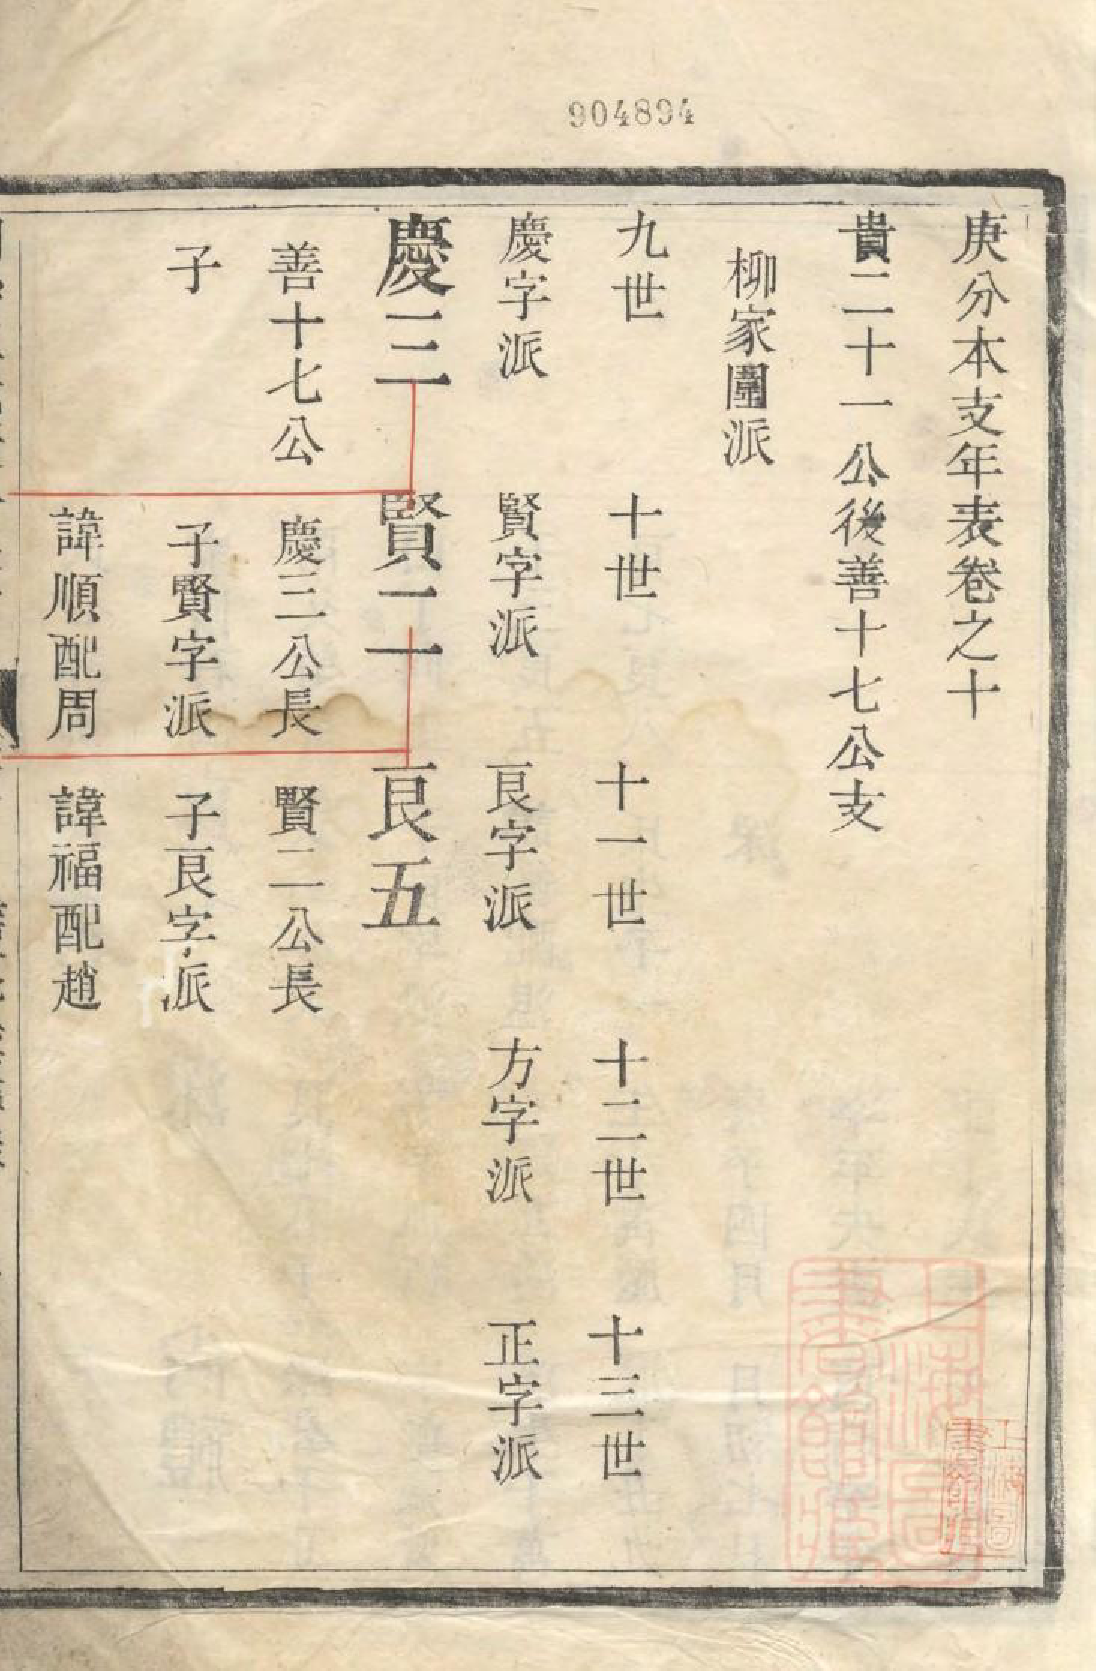 904894
庚分本支年表卷之十
貴二十一公後善十七公支
柳家圍派
九世 十世 十一世 十二世 十三世
慶字派 賢字派 艮字派 方字派 正字派
慶三 賢二 艮五
善十七公 慶三公長 賢二公長
子 子賢字派 子艮字派
諱順配周 諱福配趙
上海圖書館藏
上海圖書館藏